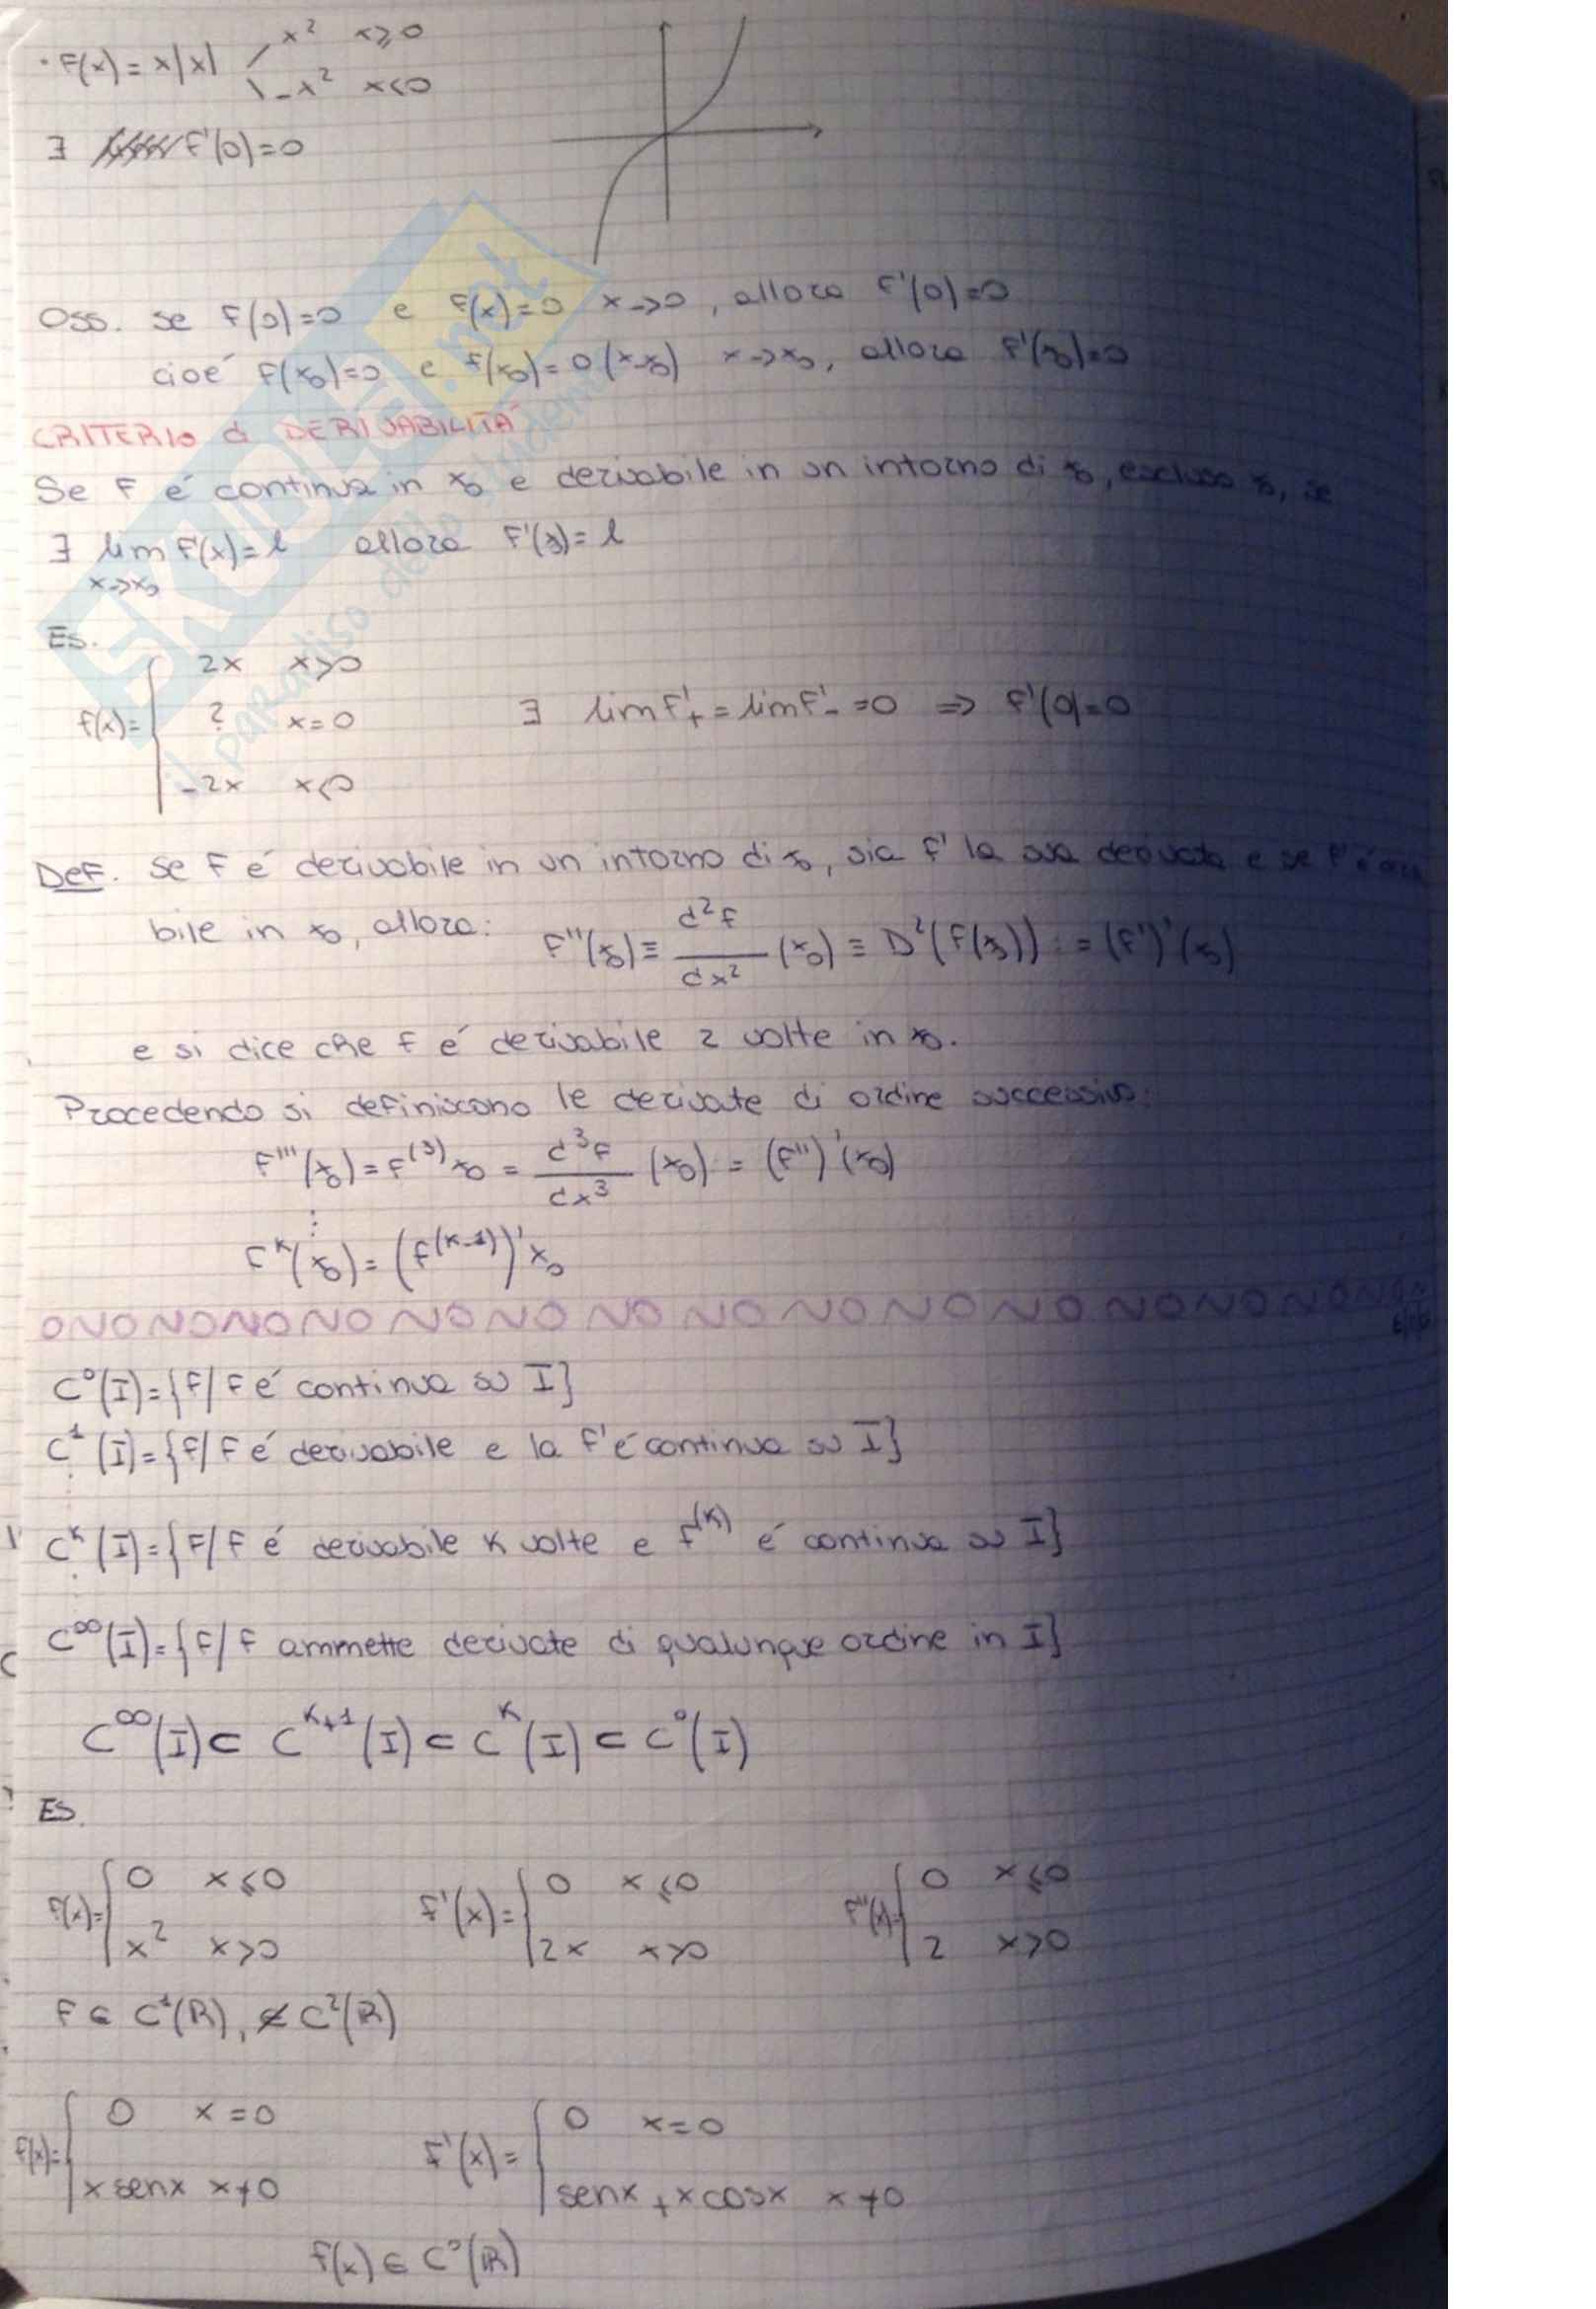 · F(x) = x|x| x² x≥0
-x² x<0
∃ F'(0)=0
Oss. se F(0)=0 e F(x)=0 x->0, allora F'(0)=0
cioé F(x₀)=0 e f(x₀)=0(x-x₀) x->x₀, allora F'(x₀)=0
CRITERIO di DERIVABILITÁ
Se F é continua in x₀ e derivabile in un intorno di x₀, escluso x₀, se
∃ lim F'(x)=l allora F'(x₀)=l
x->x₀
Es.
2x x>0
f(x)= ? x=0 ∃ lim F'₊ = lim F'₋ =0 => F'(0)=0
-2x x<0
DeF. Se F é derivabile in un intorno di x₀, sia F' la sua derivata e se F' é
bile in x₀, allora: F''(x₀) ≡ d²F/dx² (x₀) ≡ D²(F(x₀)) := (F')'(x₀)
e si dice che F é derivabile 2 volte in x₀.
Procedendo si definiscono le derivate di ordine successivo:
F'''(x₀) = F⁽³⁾x₀ = d³F/dx³ (x₀) = (F'')'(x₀)
⋮
Fᴷ(x₀) = (F⁽ᴷ⁻¹⁾)'x₀
C⁰(I)={F/F é continua su I}
C¹(I)={F/F é derivabile e la F' é continua su I}
⋮
Cᴷ(I)={F/F é derivabile K volte e f⁽ᴷ⁾ é continua su I}
⋮
C∞(I)={F/F ammette derivate di qualunque ordine in I}
C∞(I) ⊂ Cᴷ⁺¹(I) ⊂ Cᴷ(I) ⊂ C⁰(I)
ES.
F(x)= 0 x≤0 F'(x)= 0 x≤0 F''(x)= 0 x≤0
x² x>0 2x x>0 2 x>0
F ∈ C¹(R), ∉ C²(R)
F(x)= 0 x=0 F'(x)= 0 x=0
x senx x≠0 senx + x cosx x≠0
f(x) ∈ C⁰(R)
SKUOLA.net
il paradiso dello studente